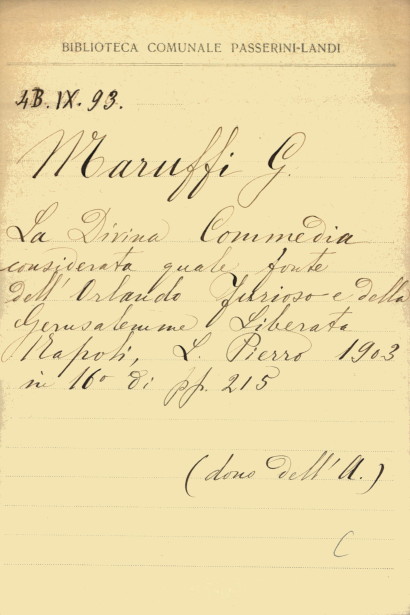 BIBLIOTECA COMUNALE PASSERINI-LANDI
4B.IX.93.
Maruffi G.
La Divina Commedia
considerata quale fonte
dell'Orlando Furioso e della
Gerusalemme Liberata
Napoli, L. Pierro 1903
in 16º di pp. 215
(dono dell'A.)
C